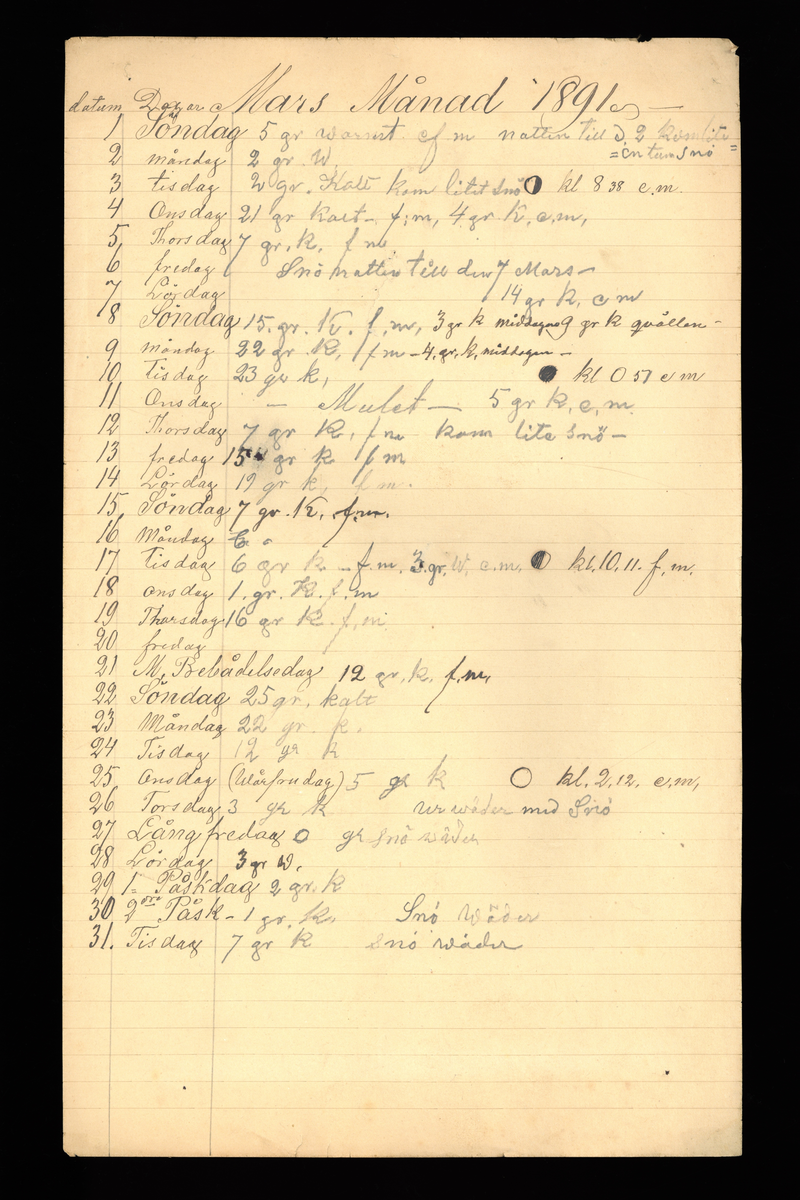 datum Dagar Mars Månad 1891 —
1 Söndag 5 gr warmt ef m natten till d, 2 kom lite
= en tum snö =
2 måndag 2 gr. W.
3 tisdag 2 gr. Kalt kom litet snö kl 8 38 e.m.
4 Onsdag 21 gr kalt – f.m, 4 gr K. e.m,
5, Thorsdag 7 gr. k. f m
6 fredag Snö natten till den 7 Mars –
7 Lördag 14 gr k, e m
8 Söndag 15. gr. K. f. m, 3 gr k middagen 9 gr k qvällen –
9 måndag 22 gr. K, f m – 4. gr. k. middagen –
10 tisdag 23 gr k, kl 0 57 e m
11 Onsdag — Mulet — 5 gr k, e, m.
12 Thorsdag 7 gr K, f m kom lite snö –
13 fredag 15 gr k f m
14 Lördag 19 gr k, f m.
15, Söndag 7 gr. K. f.m.
16 Måndag
17 tisdag 6 gr k – f.m. 3. gr. W. e.m. kl. 10. 11. f. m.
18 onsdag 1. gr. K. f. m
19 Thorsdag 16 gr k f, m
20 fredag
21 M, Bebådelsedag 12 gr. k. f.m,
22 Söndag 25 gr. kalt
23 Måndag 22 gr. k.
24 Tisdag 12 gr k
25 Onsdag (Wårfrudag) 5 gr k kl. 2. 12. e.m,
26 Torsdag 3 gr k urwäder med Snö
27 Långfredag 0 gr snö wäder
28 Lördag 3 gr W.
29 1= Påskdag 2 gr. k
30 2dra Påsk – 1 gr. k. Snö Wäder
31. Tisdag 7 gr k snö wäder